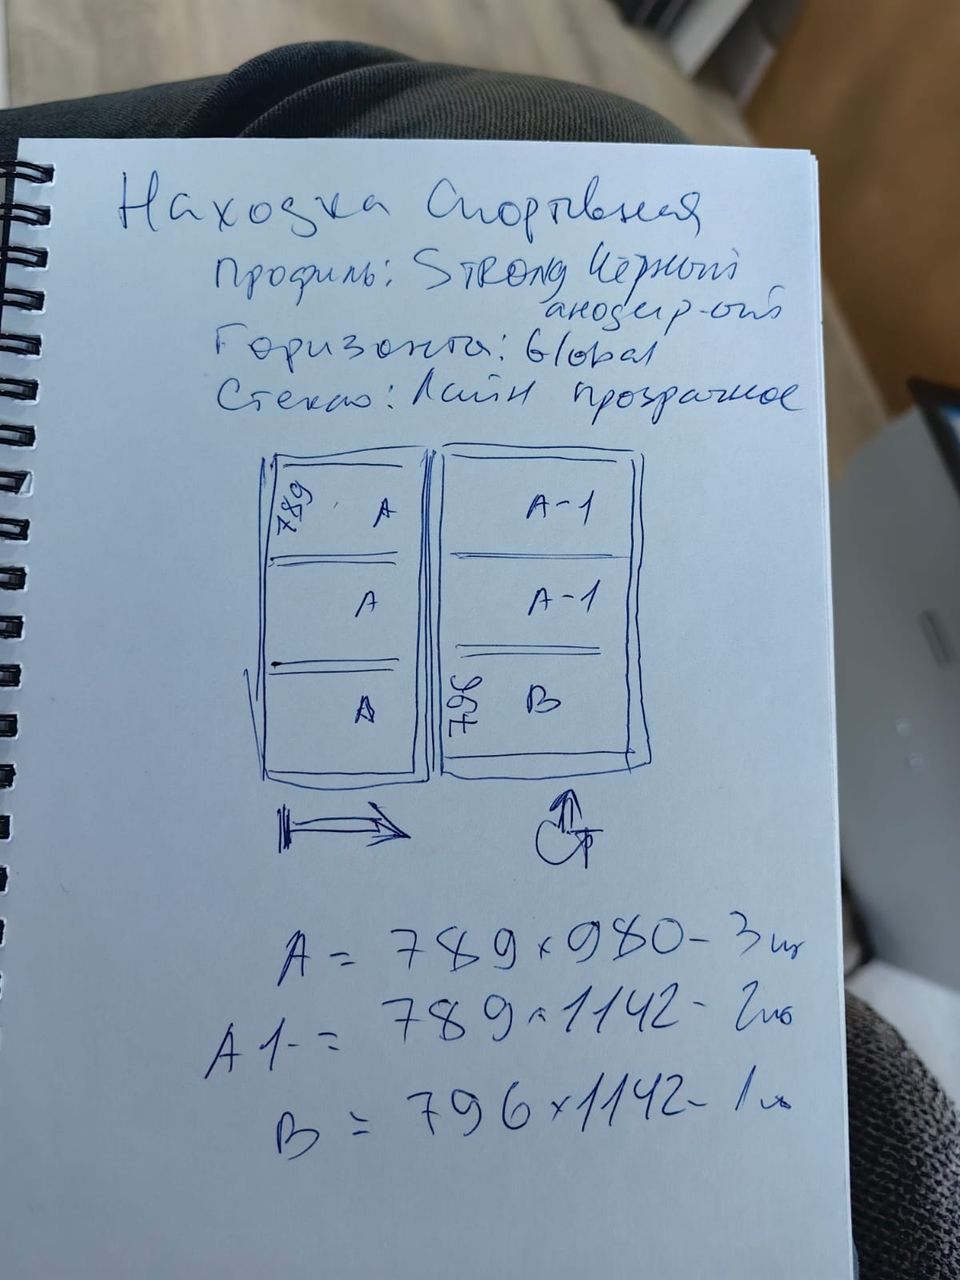 Находка Спортивная
Профиль: STRONG Чёрный
анодир-ый
Горизонта: Global
Стекло: Лайн прозрачное
789 A A-1
A A-1
A 796 B
Ст
A = 789 x 980 - 3 шт
A 1- = 789 x 1142 - 2 шт
B = 796 x 1142 - 1 шт